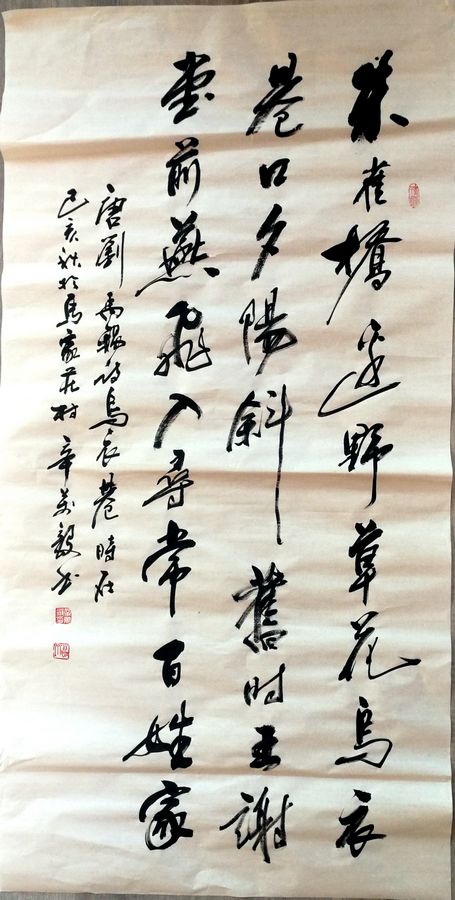 朱雀橋邊野草花烏衣
巷口夕陽斜舊时王謝
堂前燕飛入尋常百姓家
唐劉禹錫诗烏衣巷時在
己亥秋於馬家莊村辛萬毅书